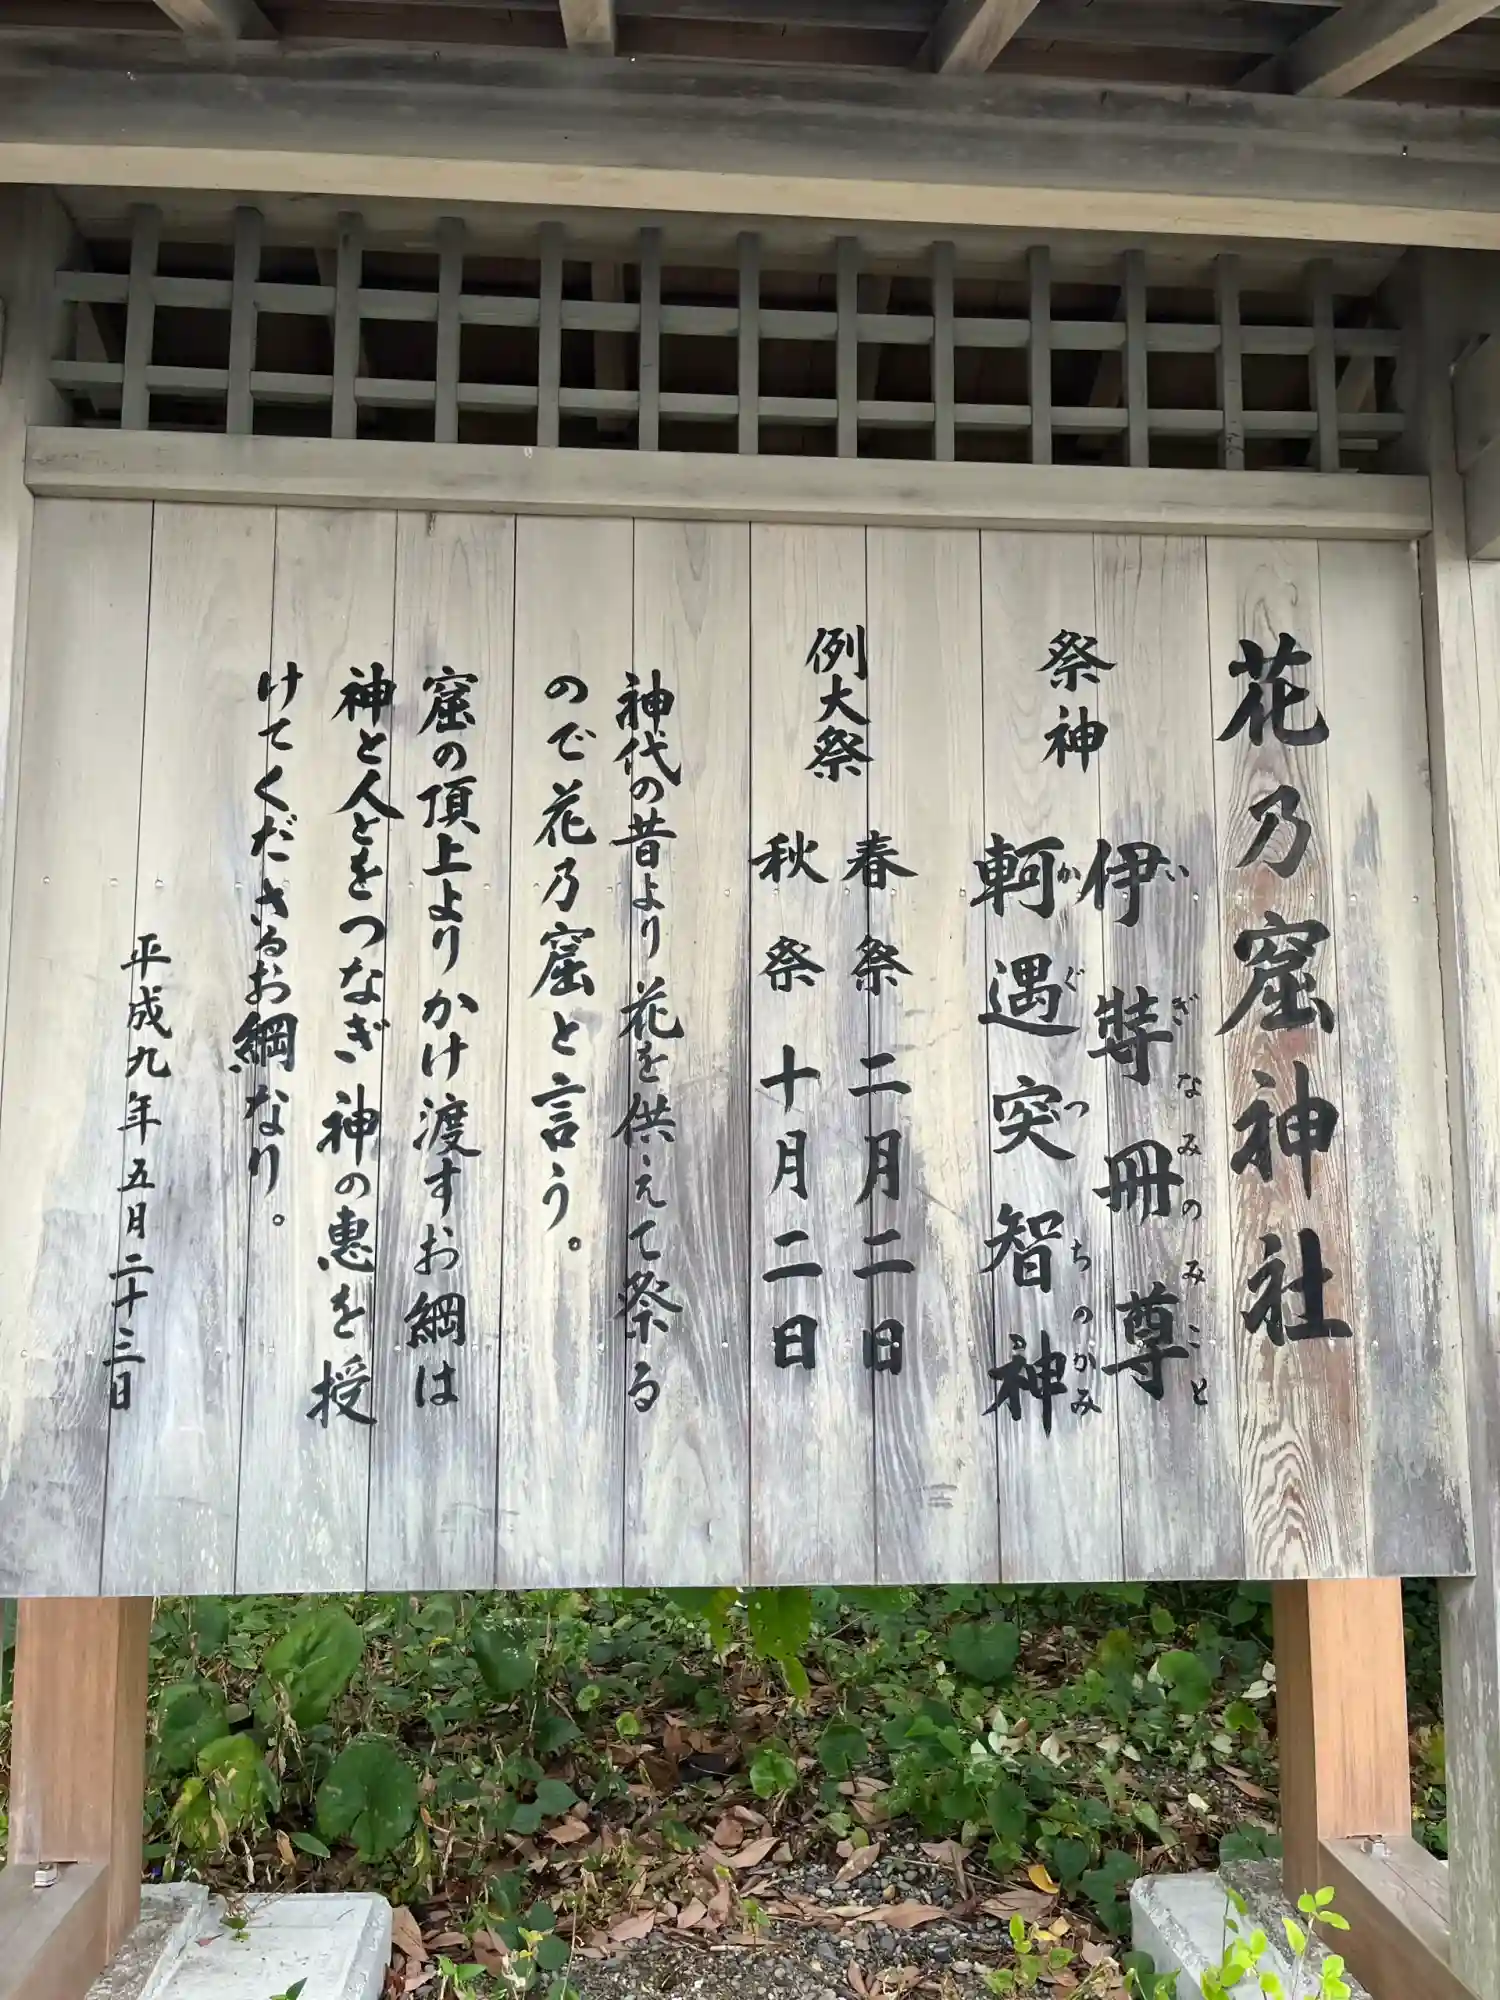 花乃窟神社
祭神
伊弉冊尊
いぎなみのみこと
軻遇突智神
かぐつちのかみ
例大祭
春祭 二月二日
秋祭 十月二日
神代の昔より花を供えて祭る
ので花乃窟と言う。
窟の頂上よりかけ渡すお綱は
神と人とをつなぎ神の恵を授
けてくださるお綱なり。
平成九年五月二十三日